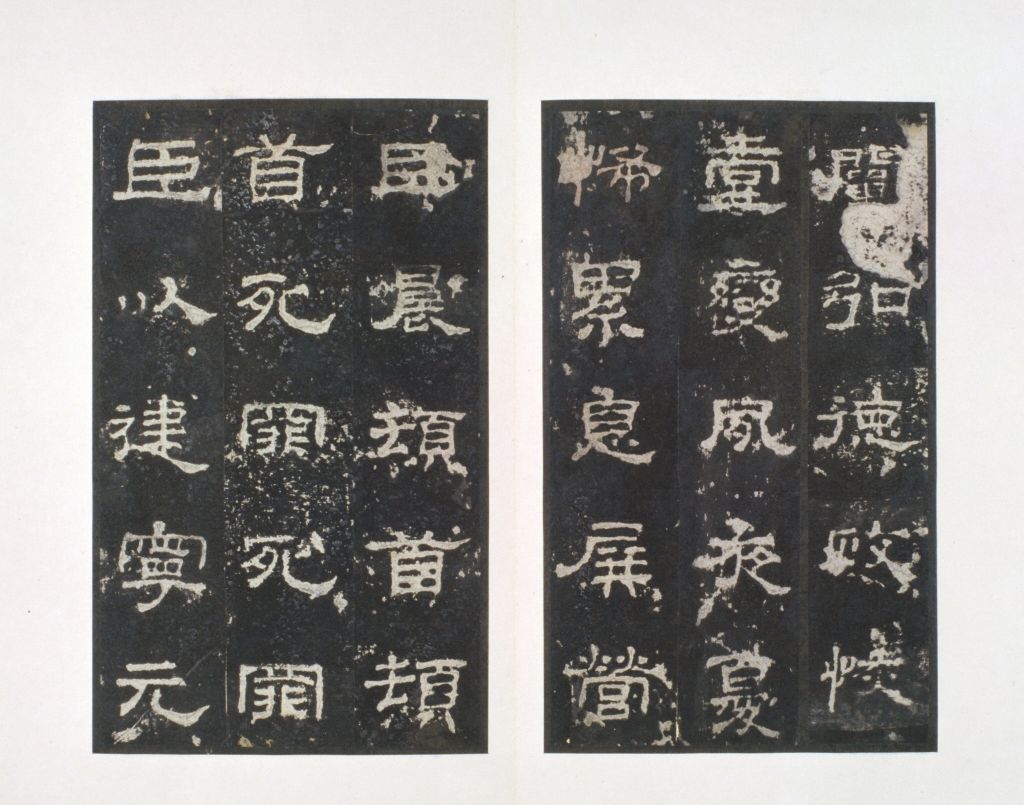 闡弘德政恢
壹變夙夜憂
怖累息屏營
臣晨頓首頓
首死罪死罪
臣以建寧元